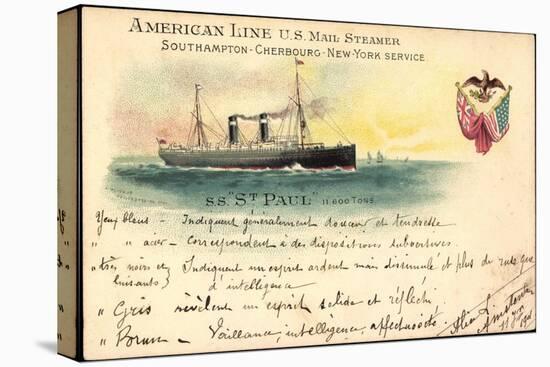 AMERICAN LINE U.S. MAIL STEAMER
SOUTHAMPTON-CHERBOURG-NEW-YORK SERVICE
S.S. "ST PAUL" 11600 TONS.
Yeux bleus - Indiquent généralement douceur et tendresse
" " acier - Correspondent à des dispositions
" très noirs et Indiquent un esprit ardent mais dissimulé et plus de ruse que
luisants d'intelligence
" Gris révèlent un esprit solide et réfléchi
" Bruns - Vaillance, intelligence, affectuosité.